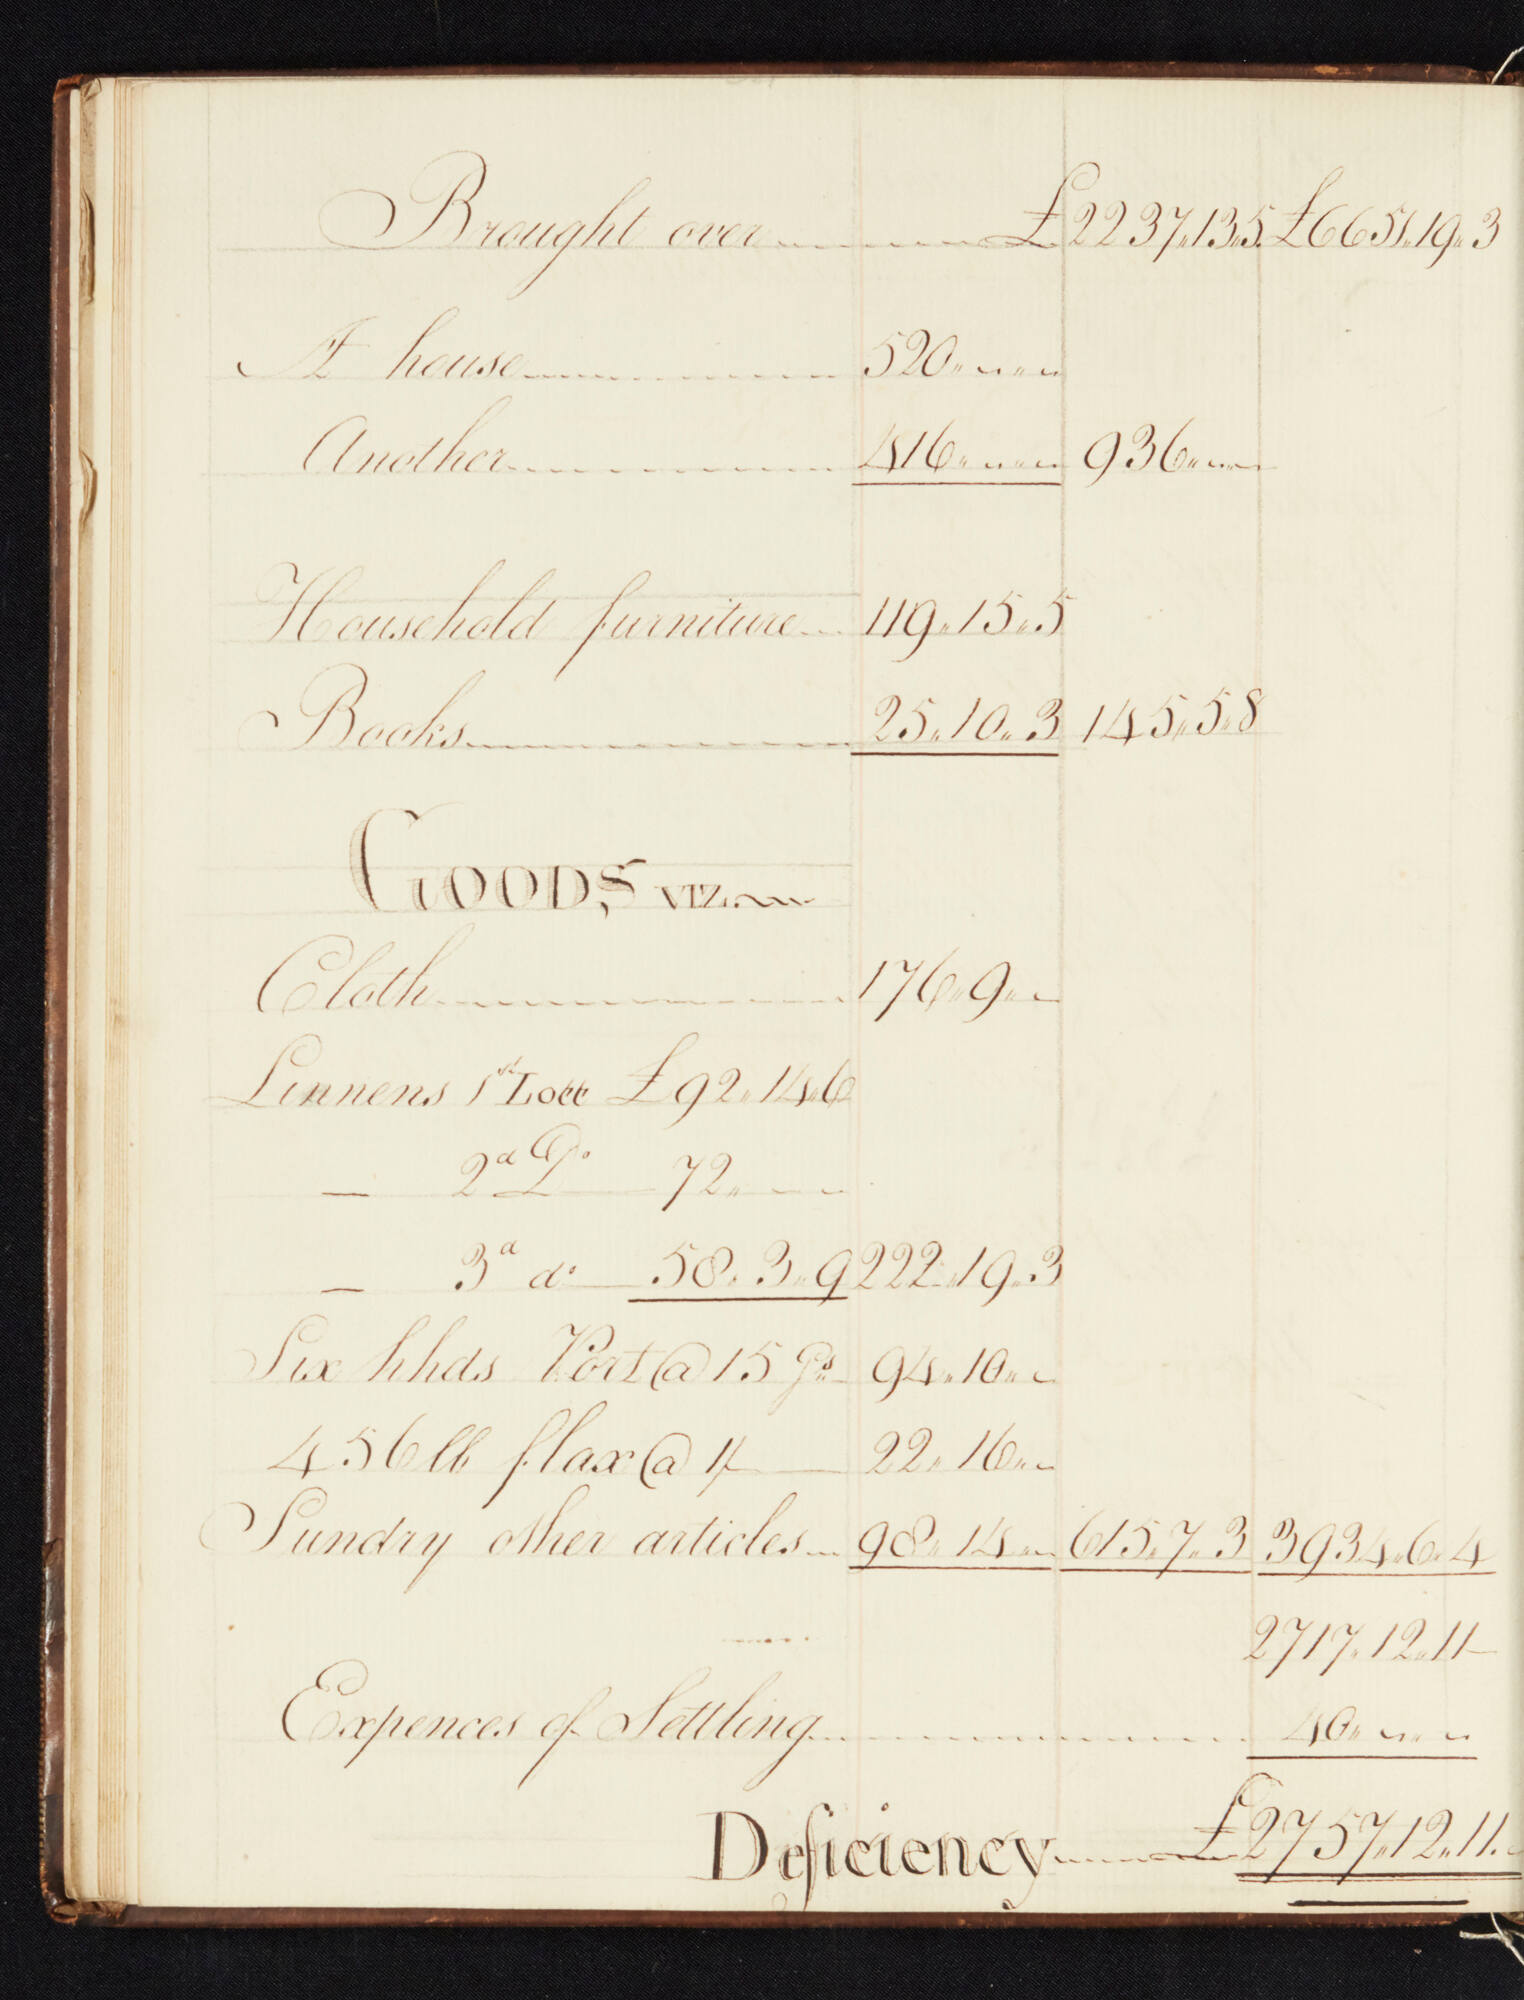 Brought over £2237„13„5 £6651„19„3
A house 520„ „ „
Another 416„ „ „ 936„ „ „
Household furniture 119„15„5
Books 25„10„3 145„5„8
GOODS, VIZ.
Cloth 176„9„
Linnens 1st Lott £92„14„6
— 2d Do 72„ „
— 3d do 58„3„9 222„19„3
Six hhds Port @ 15 Gs 94„10„
456 lb flax @ 1/ 22„16„
Sundry other articles 98„14„ 615„7„3 3934„6„4
2717„12„11
Expences of Settling 40„ „ „
Deficiency £2757„12„11